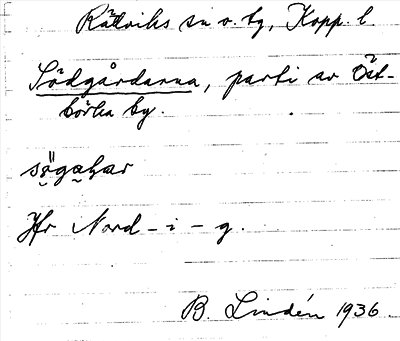 Rättviks sn o. by, Kopp. l
Södgårdarna, parti av Öst-
börka by.
sögaḥar
Jfr Nord-i-g.
B. Lindén 1936.